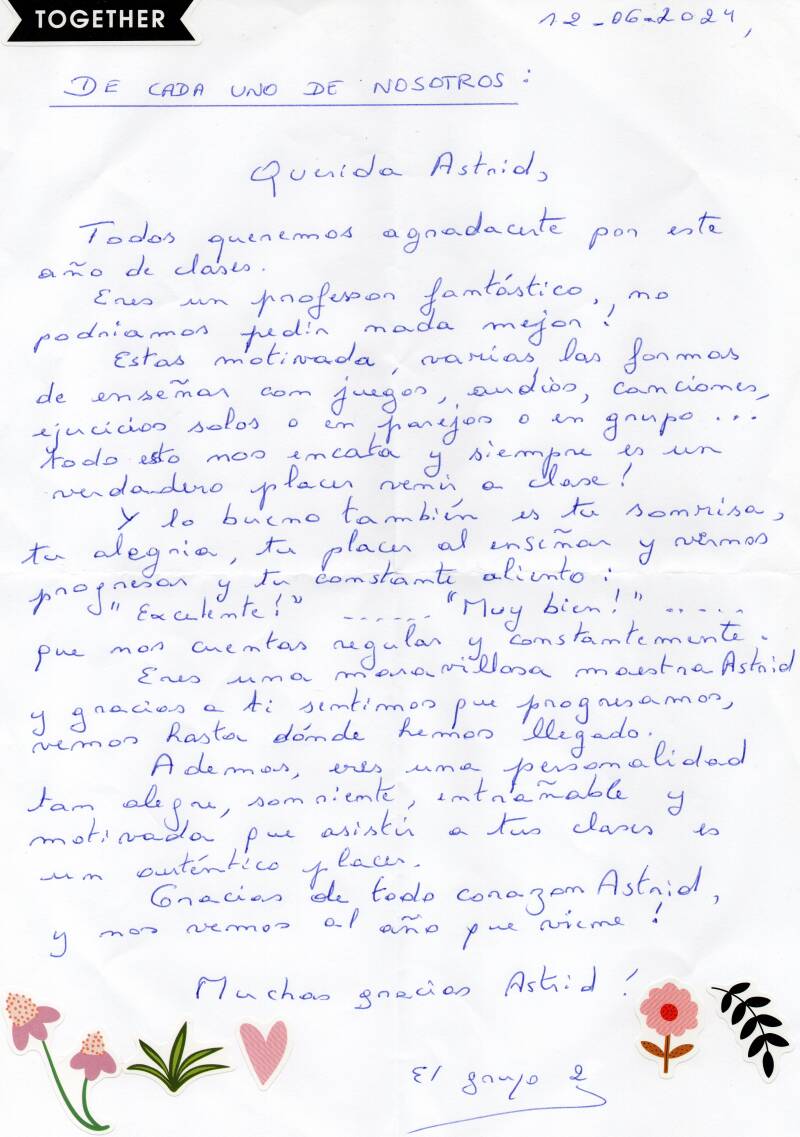 TOGETHER
12-06-2024,
DE CADA UNO DE NOSOTROS :
Querida Astrid,
Todos queremos agradacerte por este
año de clases.
Eres un professor fantástico, no
podríamos pedir nada mejor !
Estas motivada, varías las formas
de enseñar con juegos, audios, canciones,
ejucicios solos o en parejos o en grupo ...
todo esto nos encata y siempre es un
verdandero placer venir a clase !
Y lo bueno también es tu sonrisa,
tu alegria, tu placer al enseñar y vernos
progresar y tu constante aliento :
"Excelente !" ...... "Muy bien !" .....
que nos cuentas regular y constantemente.
Eres una maravillosa maestra Astrid
y gracias a ti sentimos que progresamos,
vemos hasta dónde hemos llegado.
Ademas, eres una personalidad
tam alegre, sonriente, entrañable y
motivada que asistir a tus clases es
un auténtico placer.
Gracias de todo corazon Astrid,
y nos vemos al año que viene !
Muchas gracias Astrid !
El grupo 2